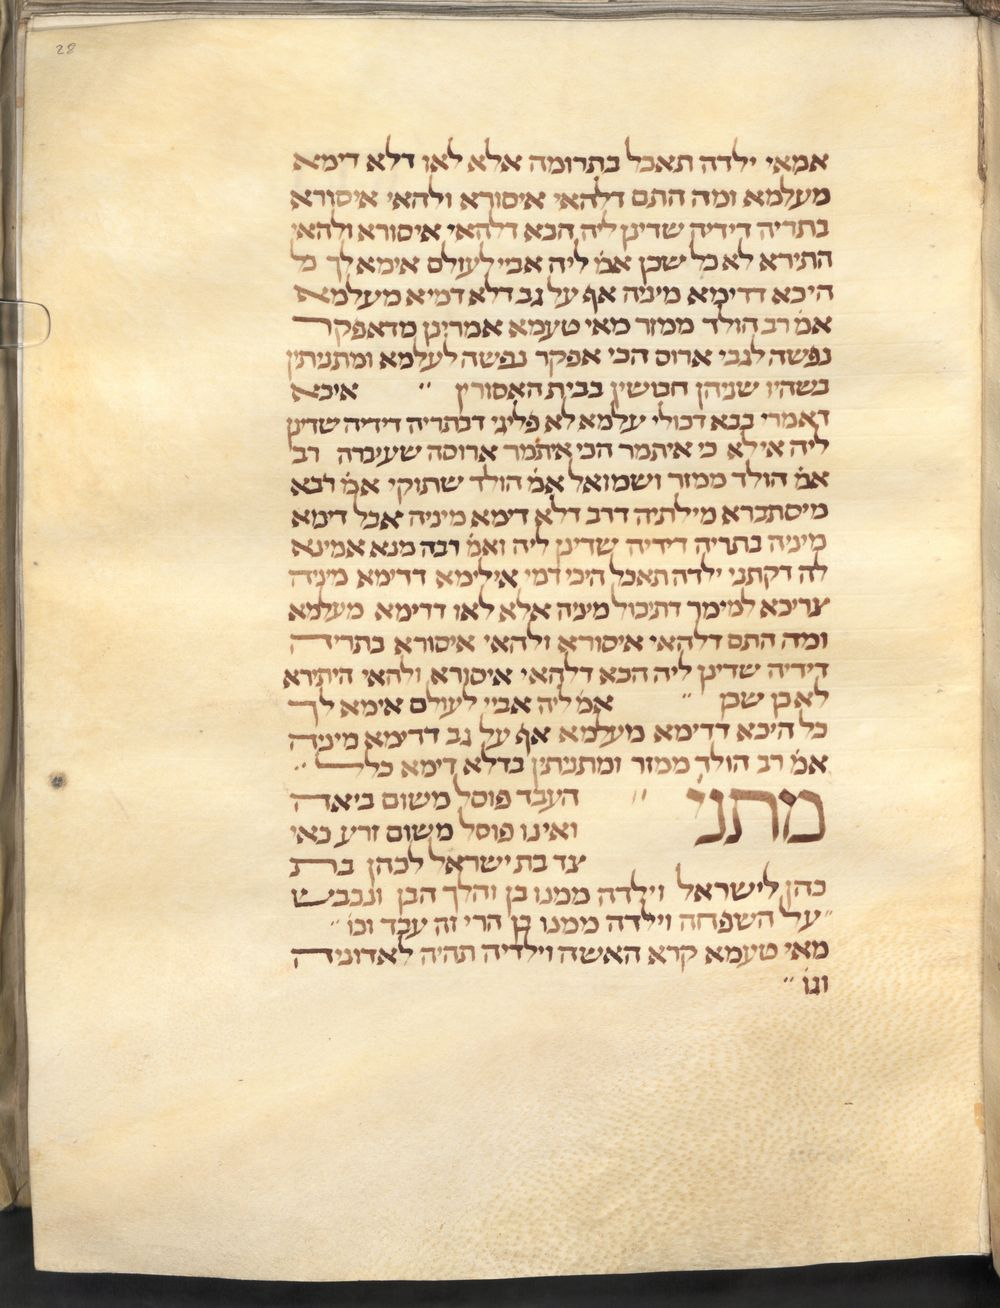 28
אמאי ילדה תאכל בתרומה אלא לאו דלא דימא
מעלמא ומה התם דלהאי איסורא ולהאי איסורא
בתריה דידיה שדינן ליה הכא דלהאי איסורא ולהאי
התירא לא כל שכן אמ׳ ליה אביי לעולם אימא לך כל
היכא דדימא מיניה אף על גב דלא דמיא מעלמא
אמ׳ רב הולד ממזר מאי טעמא אמרינן מדאפקר׳
נפשה לגבי ארוס הכי אפקר נפשה לעלמא ומתניתין
בשהיו שניהן חבושין בבית האסורין ״ איכא
דאמרי בבא דכולי עלמא לא פליגי דבתריה דידיה שדינן
ליה אילא כי איתמר הכי איתמר ארוסה שעיברה רב
אמ׳ הולד ממזר ושמואל אמ׳ הולד שתוקי אמ׳ רבא
מיסתברא מילתיה דרב דלא דימא מיניה אבל דימא
מיניה בתריה דידיה שדינן ליה ואמ׳ רבה מנא אמינא
לה דקתני ילדה תאכל היכי דמי אילימא דדימא מיניה
צריכא למימר דתיכול מיניה אלא לאו דדימא מעלמא
ומה התם דלהאי איסורא ולהאי איסורא בתריה
דידיה שדינן ליה הכא דלהאי איסורא ולהאי היתירא
לא כן שכן ״ אמ׳ ליה אביי לעולם אימא לך
כל היכא דדימא מעלמא אף על גב דדימא מיניה
אמ׳ רב הולד ממזר ומתניתין בדלא דימא כלל ״
מתני׳ ״ העבד פוסל משום ביאה
ואינו פוסל משום זרע כאי
צד בת ישראל לכהן בת
כהן לישראל וילדה ממנו בן והלך הבן ונכבש
״על השפחה וילדה ממנו בן הרי זה עבד וכו׳ ״
מאי טעמא קרא האשה וילדיה תהיה לאדוניה
וגו׳ ״